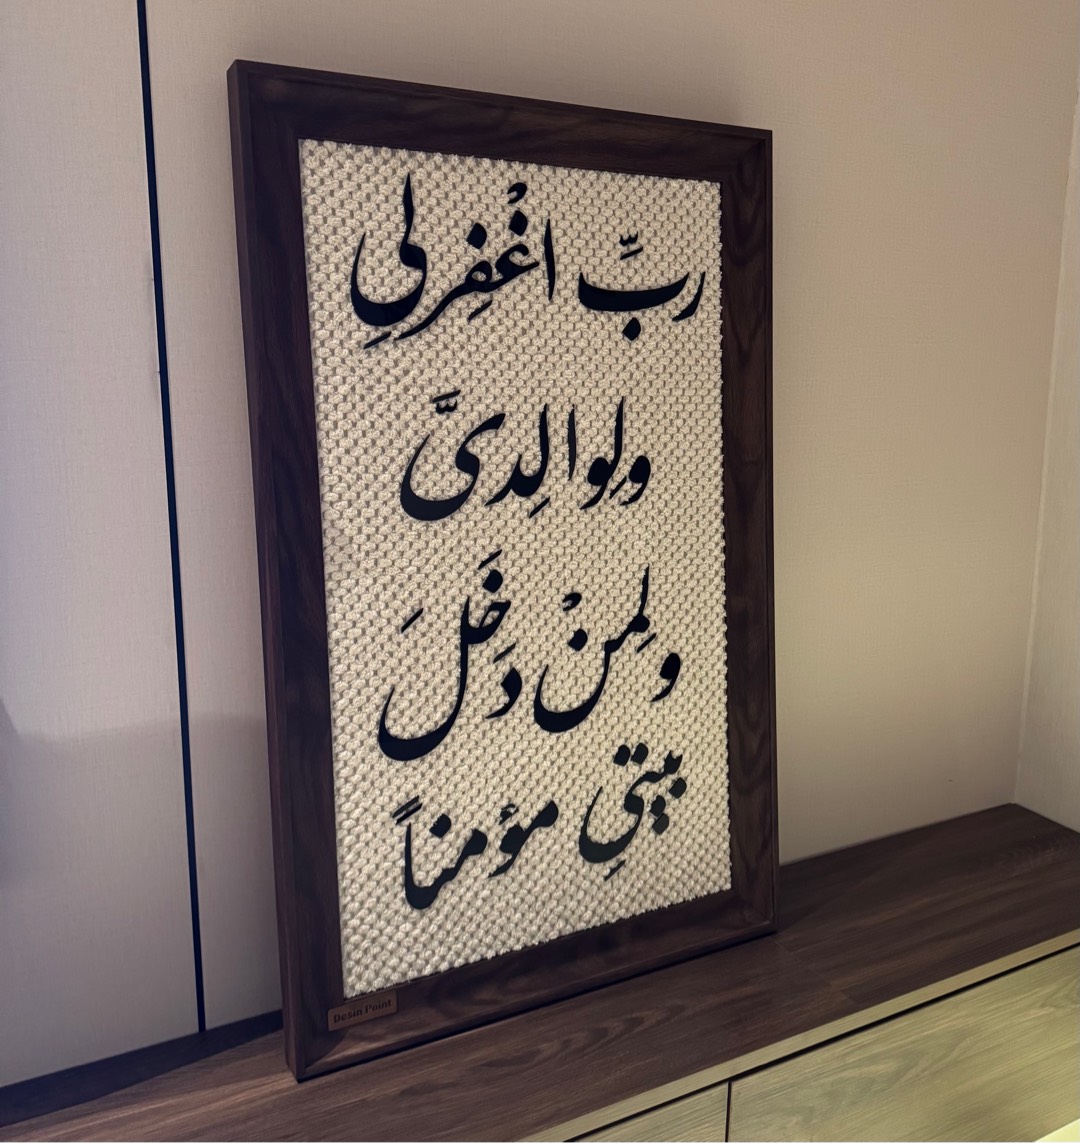 ربِّ اغْفِرلِي
ولِوالِدىَّ
ولِمنْ دَخَلَ
بيتيِ مؤمناً
Desin Point